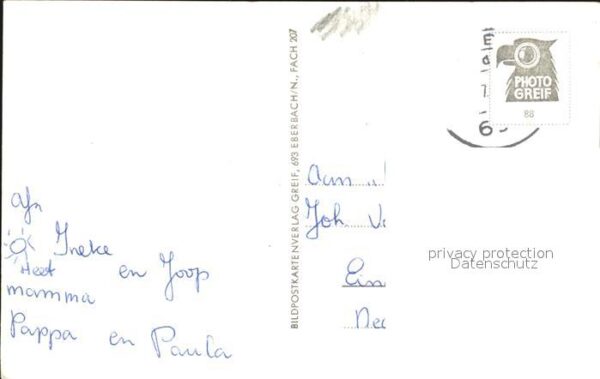 Afz
Ineke
Heet en Joop
mamma
Pappa en Paula
BILDPOSTKARTENVERLAG GREIF, 693 EBERBACH/N., FACH 207
PHOTO
GREIF
88
Aan
Joh. V
Ein
Ned
privacy protection
Datenschutz